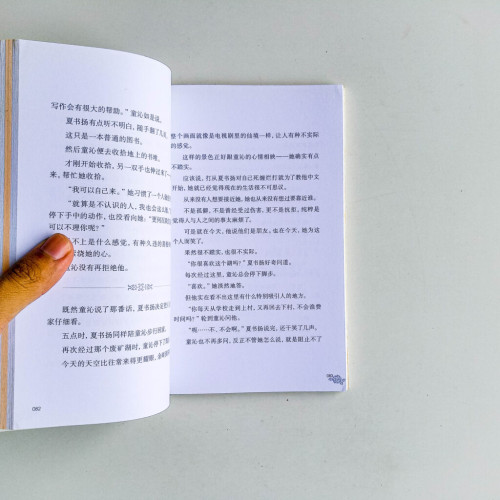 写作会有很大的帮助。”童沁如是说。
夏书扬有点听不明白，随手翻了几页，
这只是一本普通的图书。
然后童沁便去收拾地上的书堆。
才刚开始收拾，另一双手也伸过来了
来，帮忙她收拾。
“我可以自己来。”她习惯了一个人
“就算是不认识的人，我也会这么做
停下手中的动作，也没看向她：“更何况
可以不理你呢？”
不上是什么感觉，有种久违的
萦绕她的心。
童沁没有再拒绝他。
既然童沁说了那番话，夏书扬
家仔细看。
五点时，夏书扬同样陪童沁步行回家。
再次经过那个废矿湖时，童沁停下了
今天的天空比往常来得更耀眼，
082
整个画面就像是电视剧里的仙境一样，让人有种不实际
的感觉。
这样的景色正好跟童沁的心情相映——她确实有点
不踏实。
应该说，打从夏书扬对自己死缠烂打就为了教他中文
开始，她就已经觉得现在的生活很不可思议。
从来没有人想要接近她，她也从来没有想过要靠近谁。
不是孤僻，不是曾经受过伤害，更不是抗拒，纯粹是
觉得人与人之间的事太麻烦了。
可是就在今天，他说他们是朋友，也在今天，她为这
个人而笑了。
果然很不踏实，也很不实际。
“你很喜欢这个湖吗？”夏书扬好奇问道。
每次经过这里，童沁总会停下脚步。
“喜欢。”她淡然地答。
但他实在看不出这里有什么特别吸引人的地方。
“你每天从学校走到上村，又再回去下村，不会浪费
时间吗？”轮到童沁问他。
“呃……不、不会啊。”夏书扬说完，还干笑了几声。
童沁也不再多问，反正不管她怎么说，就是阻止不了